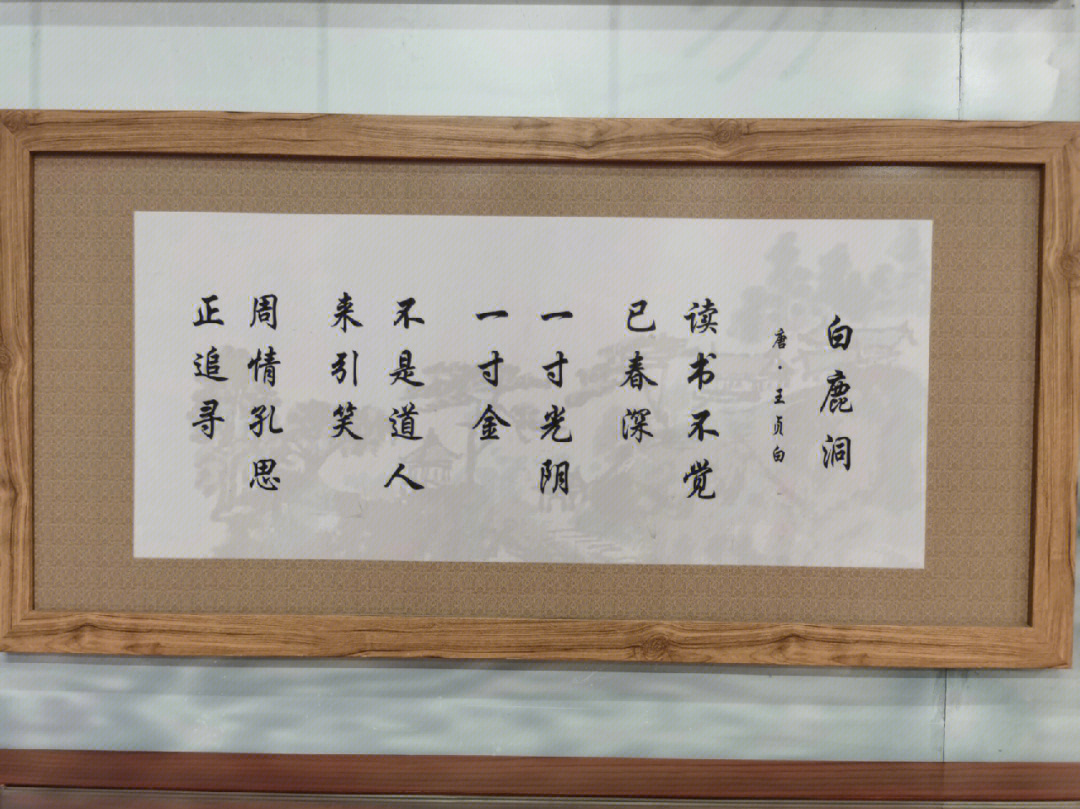 白鹿洞
唐·王贞白
读书不觉
已春深
一寸光阴
一寸金
不是道人
来引笑
周情孔思
正追寻